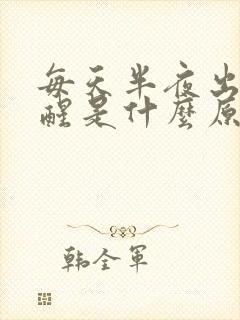 每天半夜出
醒是什麼原
韩全军